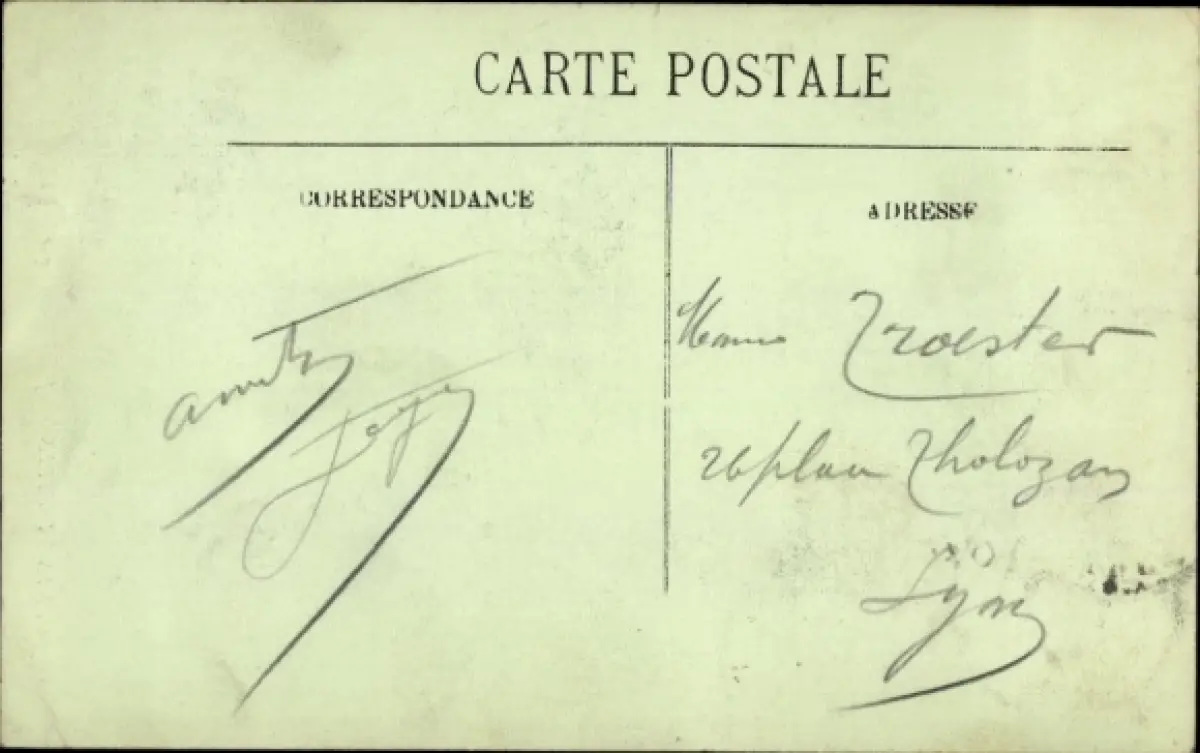 CARTE POSTALE
CORRESPONDANCE
ADRESSE
Troester
26 place Tholozan
Lyon